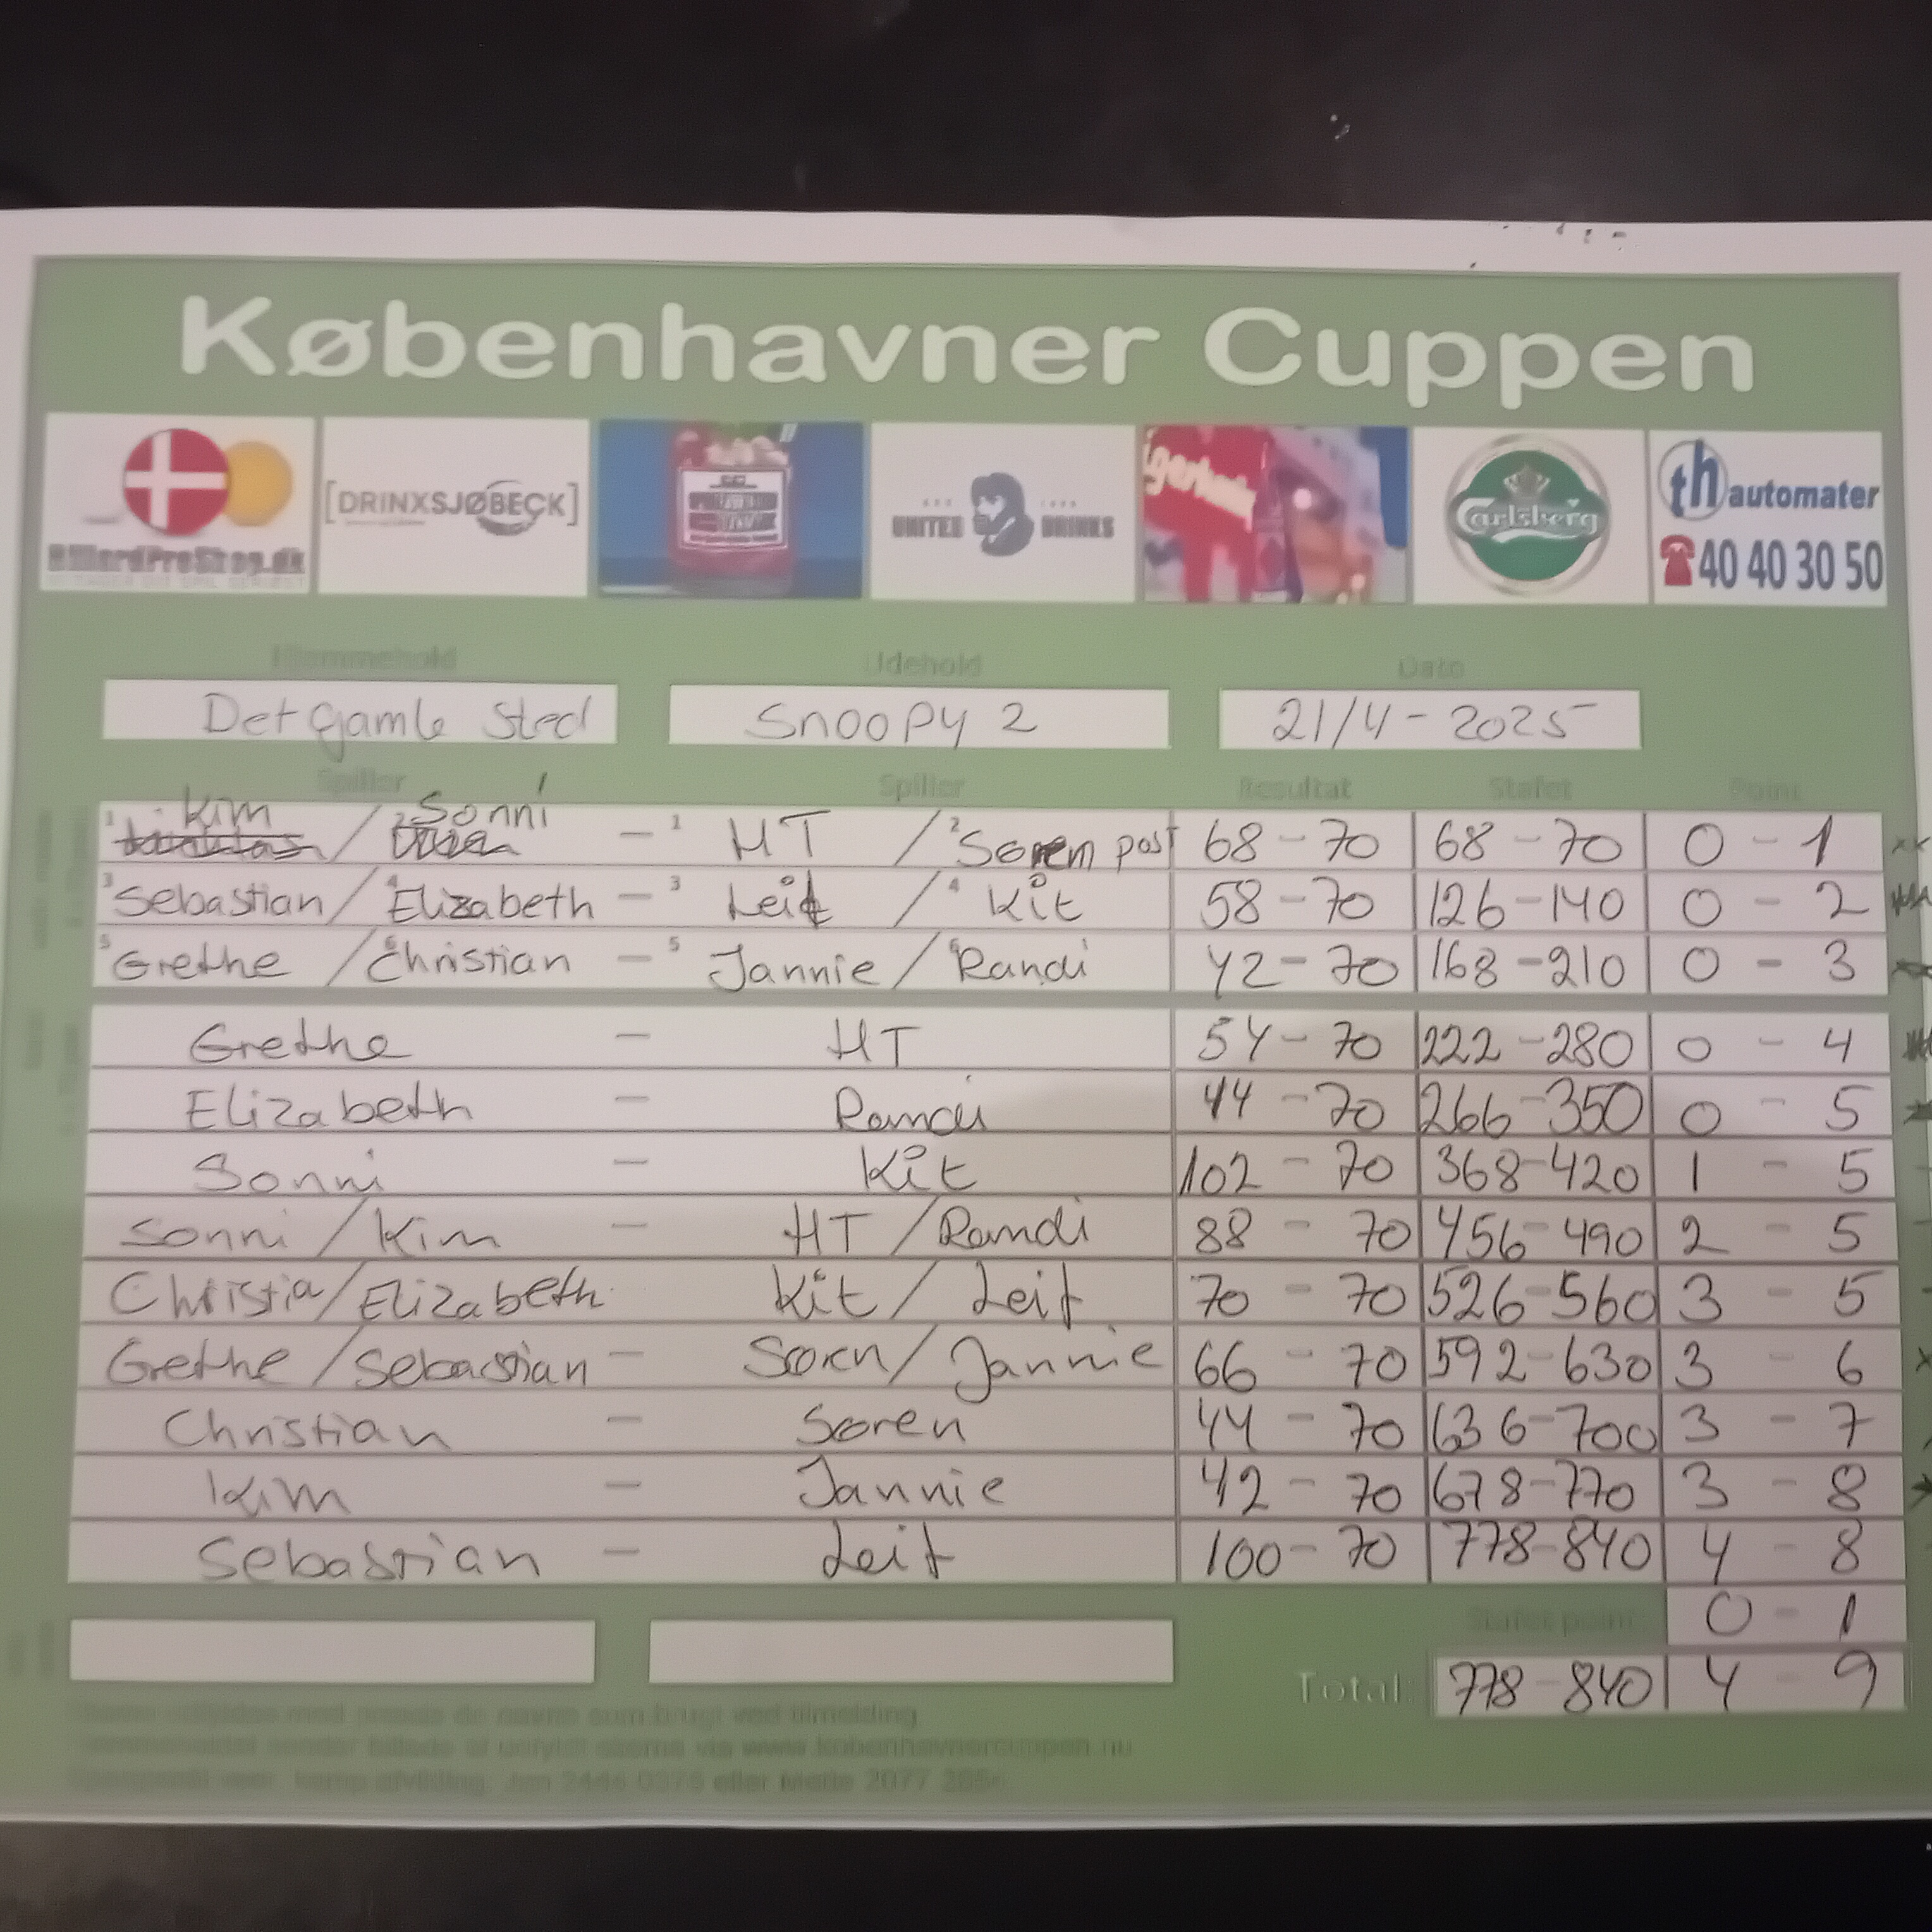 Københavner Cuppen
BilliardProShop.dk
[DRINXSJØBECK]
UNITED DRINKS
Carlsberg
th automater
☎40 40 30 50
Hjemmehold Udehold Dato
Det gamle Sted Snoopy 2 21/4-2025
Spiller Spiller Resultat Stafet Point
1 Kim / 2 Sonni - 1 HT / 2 Søren post 68-70 68-70 0-1
3 Sebastian / 4 Elizabeth - 3 Leif / 4 Kit 58-70 126-140 0-2
5 Grethe / 6 Christian - 5 Jannie / 6 Randi 42-70 168-210 0-3
Grethe - HT 54-70 222-280 0-4
Elizabeth - Randi 44-70 266-350 0-5
Sonni - Kit 102-70 368-420 1-5
Sonni / Kim - HT / Randi 88-70 456-490 2-5
Christia / Elizabeth - Kit / Leif 70-70 526-560 3-5
Grethe / Sebastian - Søren / Jannie 66-70 592-630 3-6
Christian - Søren 44-70 636-700 3-7
Kim - Jannie 42-70 678-770 3-8
Sebastian - Leif 100-70 778-840 4-8
Stafet point: 0-1
Total: 778-840 4-9